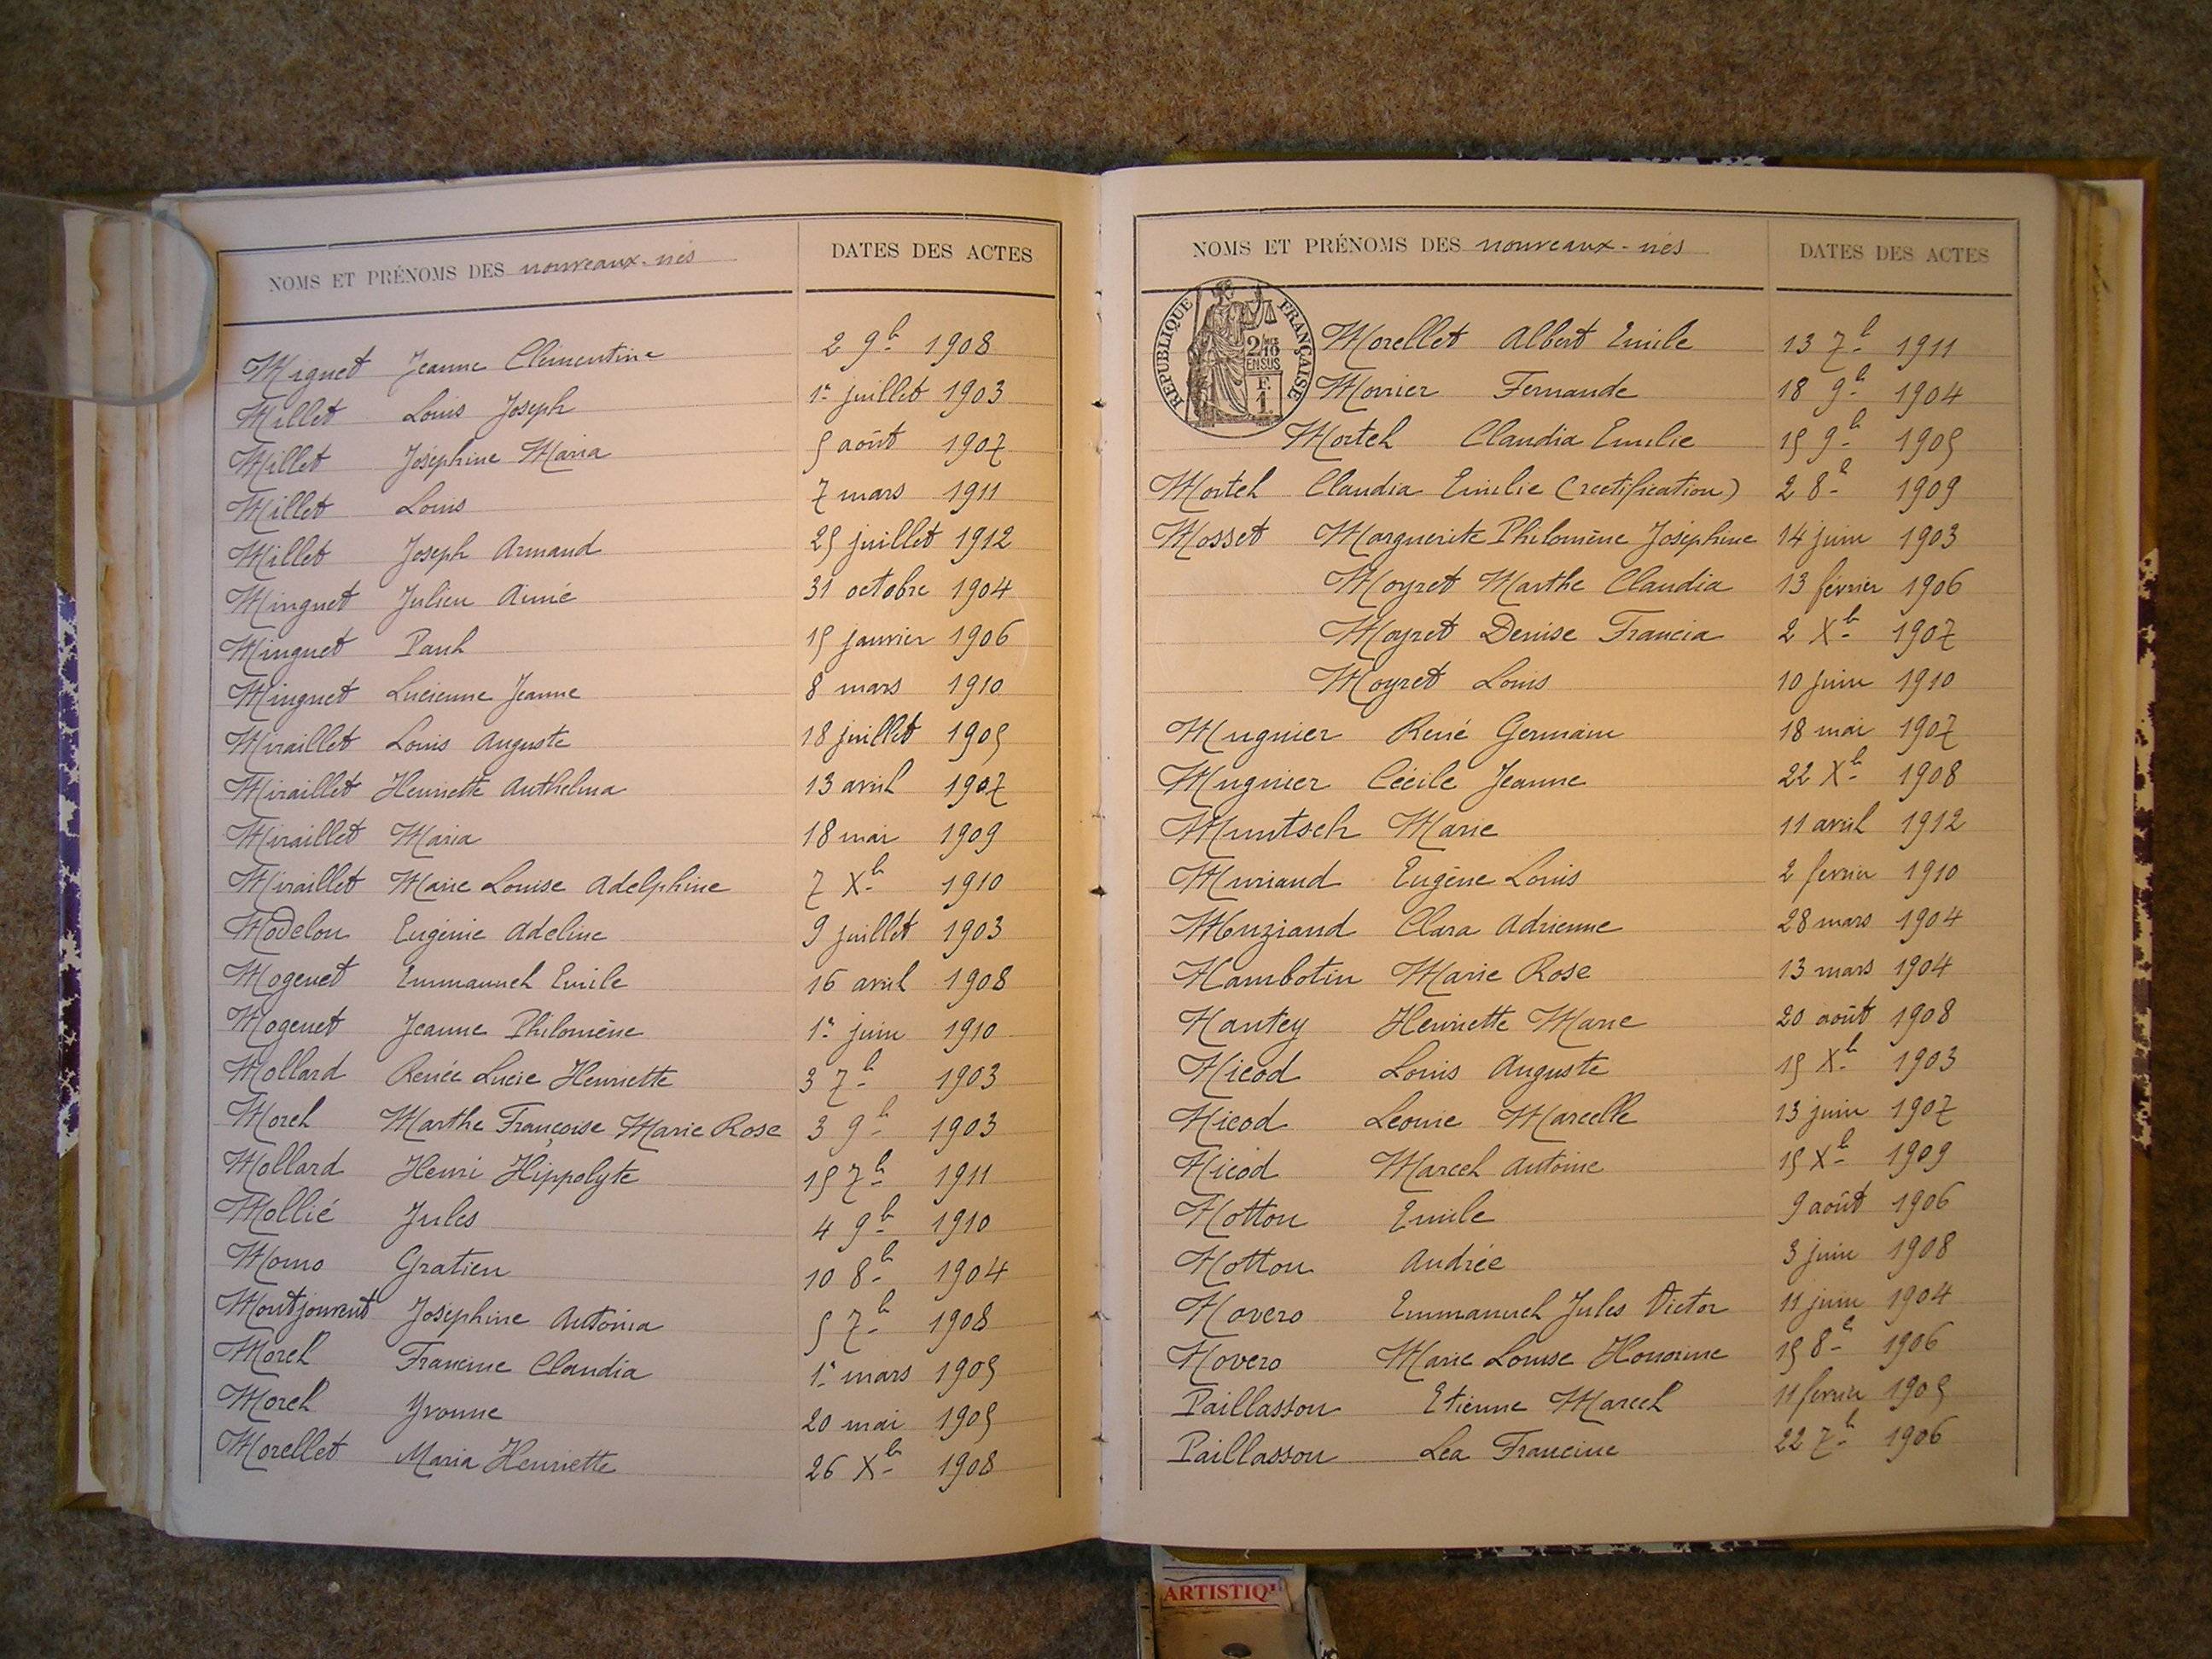 NOMS ET PRÉNOMS DES nouveaux-nés DATES DES ACTES
Miguet Jeanne Clémentine 2 9b 1908
Millet Louis Joseph 1er juillet 1903
Millet Joséphine Maria 5 août 1907
Millet Louis 7 mars 1911
Millet Joseph Armand 25 juillet 1912
Minguet Julien Aimé 31 octobre 1904
Minguet Paul 15 janvier 1906
Minguet Lucienne Jeanne 8 mars 1910
Miraillet Louis Auguste 18 juillet 1905
Miraillet Henriette Anthelma 13 avril 1907
Miraillet Maria 18 mai 1909
Miraillet Marie Louise Adelphine 7 Xb 1910
Modelon Eugénie Adeline 9 juillet 1903
Mogenet Emmanuel Emile 16 avril 1908
Mogenet Jeanne Philomène 1er juin 1910
Mollard Renée Lucie Henriette 3 7b 1903
Morel Marthe Françoise Marie Rose 3 9b 1903
Mollard Henri Hippolyte 15 7b 1911
Mollié Jules 4 9b 1910
Momo Gratien 10 8b 1904
Montjouvent Joséphine Antonia 5 7b 1908
Morel Francine Claudia 1er mars 1905
Morel Yvonne 20 mai 1905
Morellet Maria Henriette 26 Xb 1908
NOMS ET PRÉNOMS DES nouveaux-nés DATES DES ACTES
RÉPUBLIQUE FRANÇAISE
2/10
EN SUS
F.
1.
Morellet Albert Emile 13 7b 1911
Morrier Fernande 18 9b 1904
Mortel Claudia Emilie 15 9b 1905
Mortel Claudia Emilie (rectification) 2 8b 1909
Mosset Marguerite Philomène Joséphine 14 juin 1903
Moyret Marthe Claudia 13 février 1906
Moyret Denise Francia 2 Xb 1907
Moyret Louis 10 juin 1910
Mugnier René Germain 18 mai 1907
Mugnier Cécile Jeanne 22 Xb 1908
Muntsch Marie 11 avril 1912
Muriand Eugène Louis 2 février 1910
Muziand Clara Adrienne 28 mars 1904
Nambotin Marie Rose 13 mars 1904
Nantey Henriette Marie 20 août 1908
Nicod Louis Auguste 15 Xb 1903
Nicod Leonie Marcelle 13 juin 1907
Nicod Marcel Antoine 15 Xb 1909
Notton Emile 9 août 1906
Notton Andrée 3 juin 1908
Novero Emmanuel Jules Victor 11 juin 1904
Novero Marie Louise Honorine 15 8b 1906
Paillasson Etienne Marcel 11 février 1905
Paillasson Léa Francine 22 7b 1906
ARTISTIQ